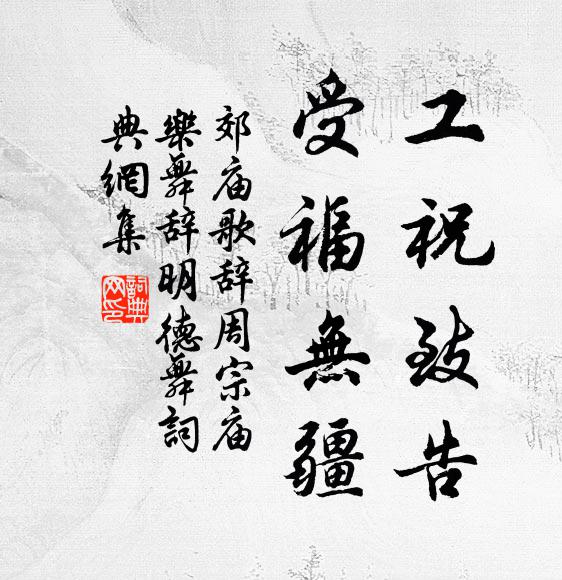 工祝致告
受福無疆
郊庙歌辞周宗庙
樂舞辞明德舞詞
典網集
詞典
网印